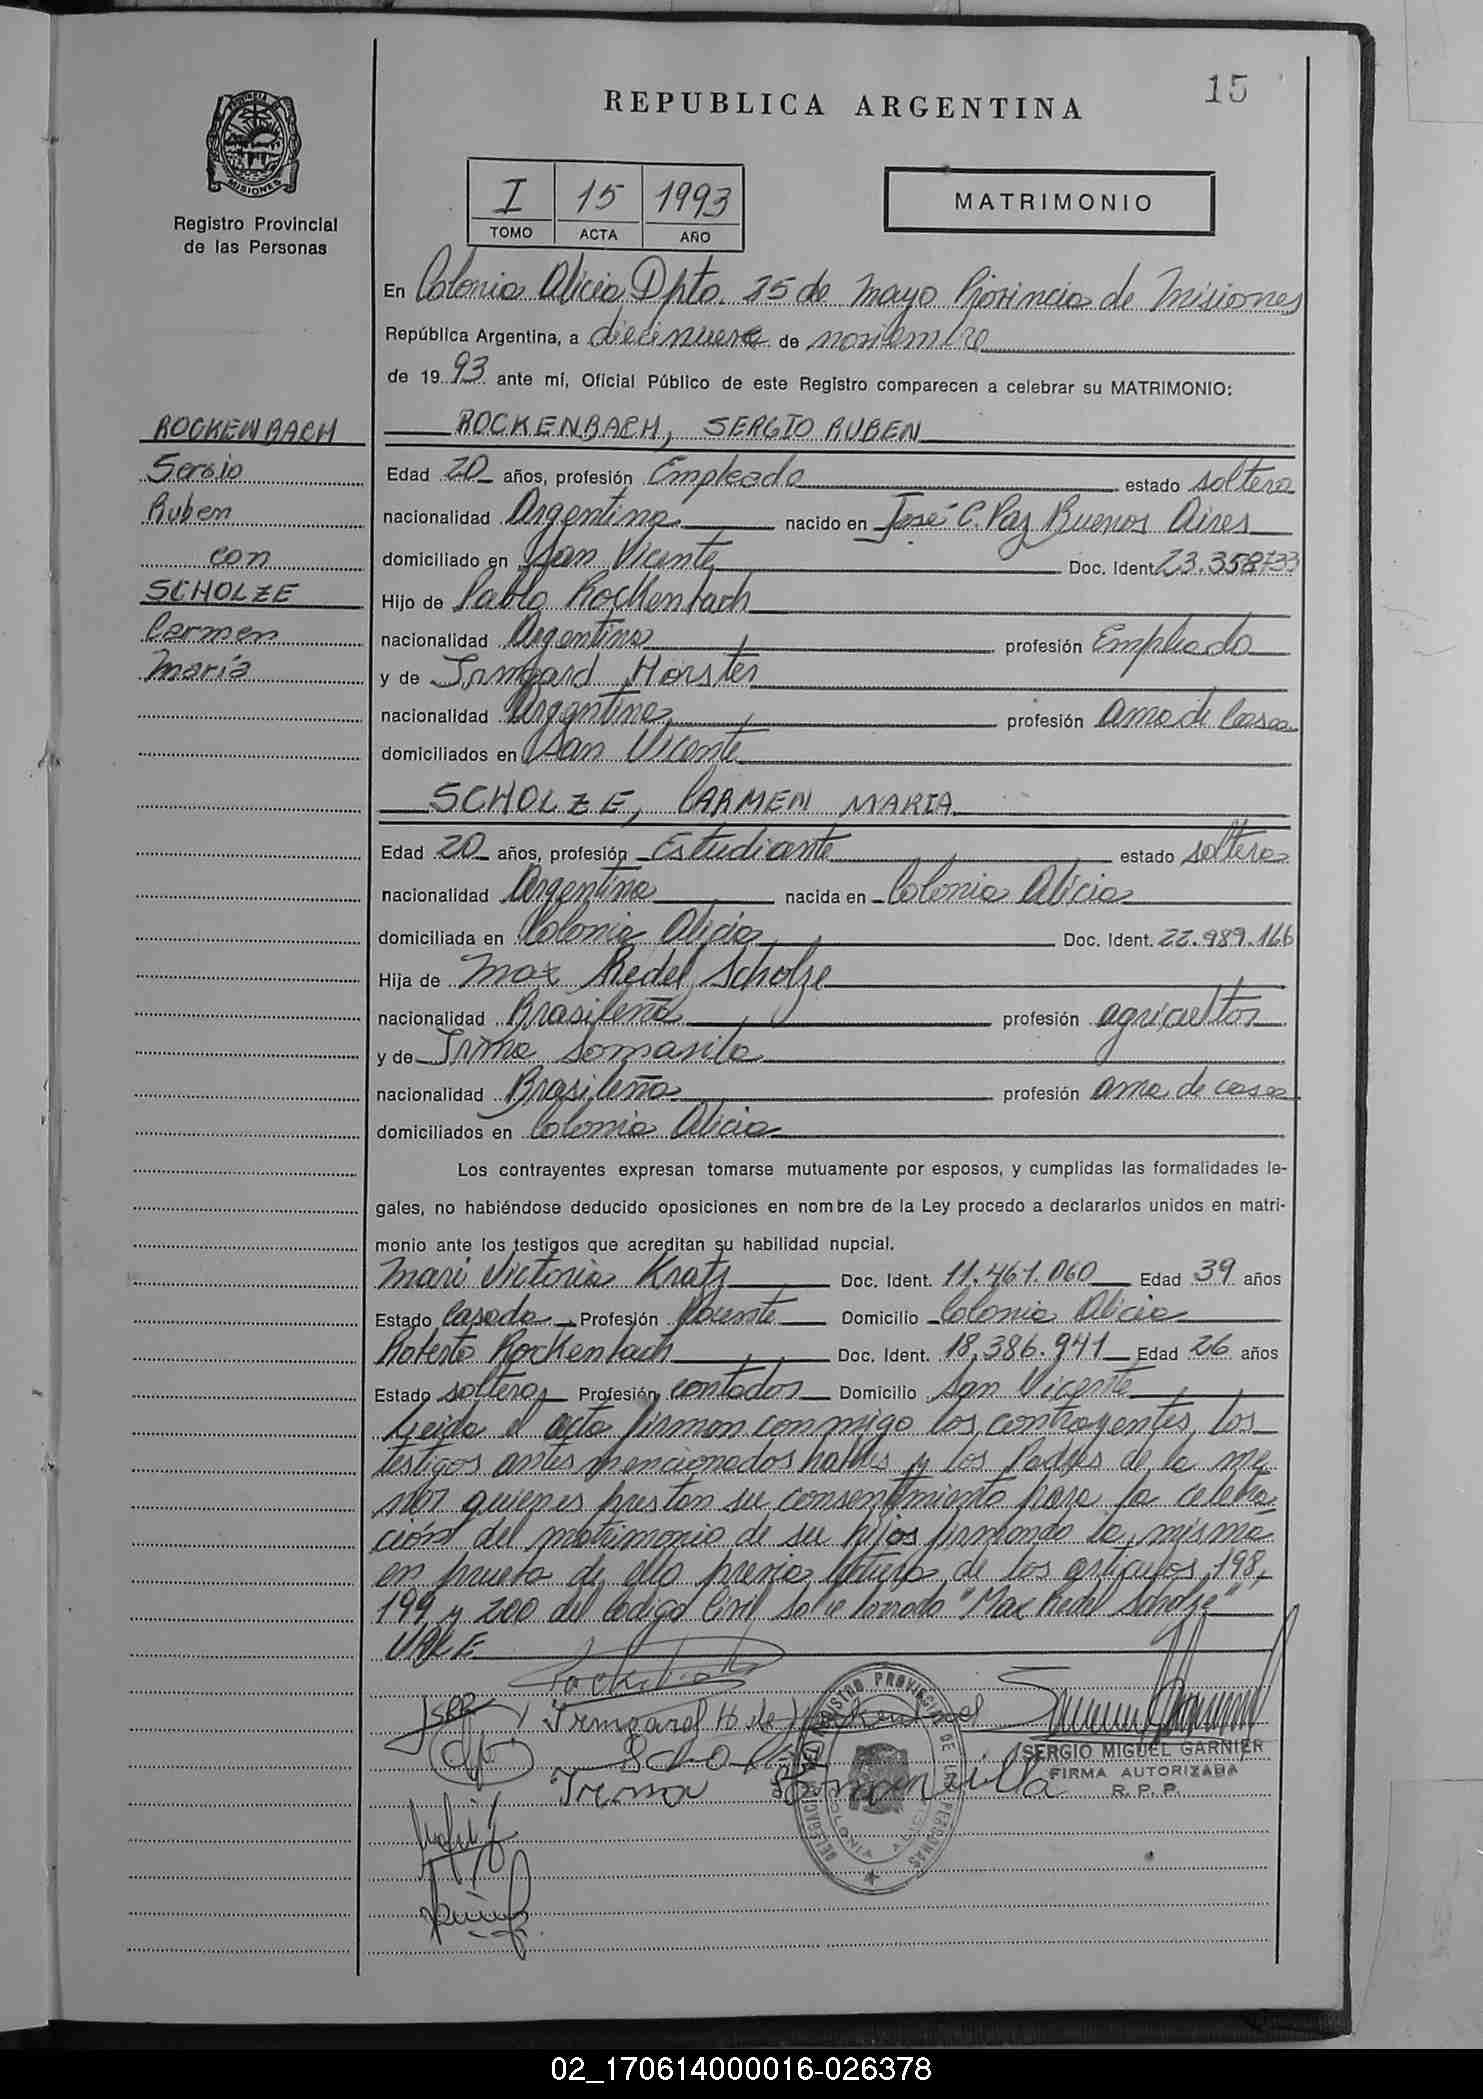 15
REPUBLICA ARGENTINA
PROVINCIA DE
MISIONES
Registro Provincial
de las Personas
I 15 1993
TOMO ACTA AÑO
MATRIMONIO
En Colonia Alicia Dpto. 25 de Mayo Provincia de Misiones
República Argentina, a diecinueve de noviembre
de 19 93 ante mí, Oficial Público de este Registro comparecen a celebrar su MATRIMONIO:
ROCKENBACH
Sergio
Ruben
con
SCHOLZE
Carmen
María
ROCKENBACH, SERGIO RUBEN
Edad 20 años, profesión Empleado estado soltero
nacionalidad Argentina nacido en José C. Paz Buenos Aires
domiciliado en San Vicente Doc. Ident. 23.358733
Hijo de Pablo Rockenbach
nacionalidad Argentina profesión Empleado
y de Irmgard Horster
nacionalidad Argentina profesión Ama de Casa
domiciliados en San Vicente
SCHOLZE, CARMEN MARIA
Edad 20 años, profesión Estudiante estado soltera
nacionalidad Argentina nacida en Colonia Alicia
domiciliada en Colonia Alicia Doc. Ident. 22.989.166
Hija de Max Riedel Scholze
nacionalidad Brasileña profesión agricultor
y de Irma
nacionalidad Brasileña profesión ama de casa
domiciliados en Colonia Alicia
Los contrayentes expresan tomarse mutuamente por esposos, y cumplidas las formalidades le-
gales, no habiéndose deducido oposiciones en nombre de la Ley procedo a declararlos unidos en matri-
monio ante los testigos que acreditan su habilidad nupcial.
Mari Victoria Kratz Doc. Ident. 11.461.060 Edad 39 años
Estado Casada Profesión Docente Domicilio Colonia Alicia
Roberto Rockenbach Doc. Ident. 18.386.941 Edad 26 años
Estado soltero Profesión contador Domicilio San Vicente
Leida el acta firman conmigo los contrayentes, los
testigos antes mencionados habiles y los Padres de la me
nor quienes prestan su consentimiento para la celebra
ción del matrimonio de su hijos firmando la misma
en prueba de ello previa lectura de los articulos 198,
199 y 200 del Codigo Civil So/e borrado "Max Riedel Scholze"
VALE
Irmgard H de Rockenbach
Scholze
Irma
SERGIO MIGUEL GARNIER
FIRMA AUTORIZADA
R. P. P.
DELEGACION DEL REGISTRO PROVINCIAL DE LAS PERSONAS
COLONIA ALICIA
02_170614000016-026378